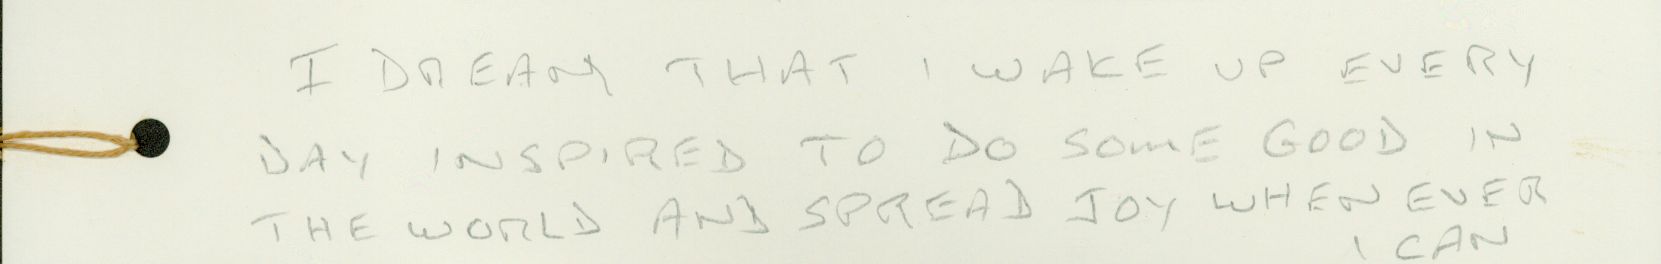 I DREAM THAT I WAKE UP EVERY
DAY INSPIRED TO DO SOME GOOD IN
THE WORLD AND SPREAD JOY WHEN EVER
I CAN